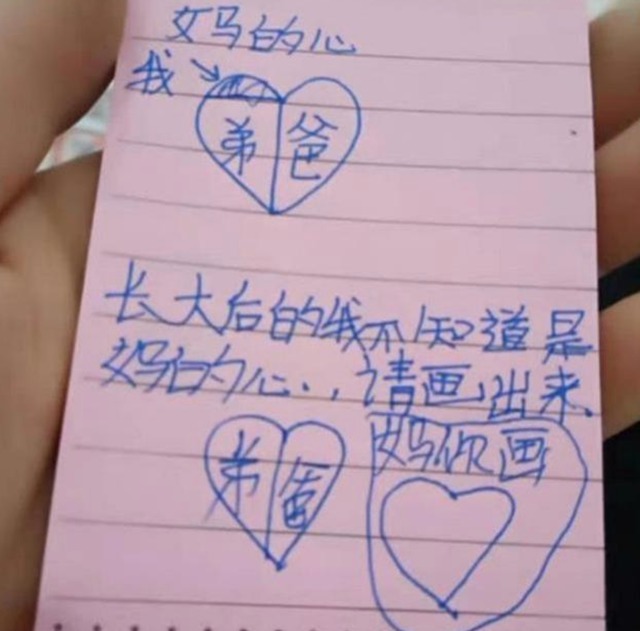 妈的心
我
弟 爸
长大后的我不知道是
妈的心..,请画出来
弟 爸 妈你画